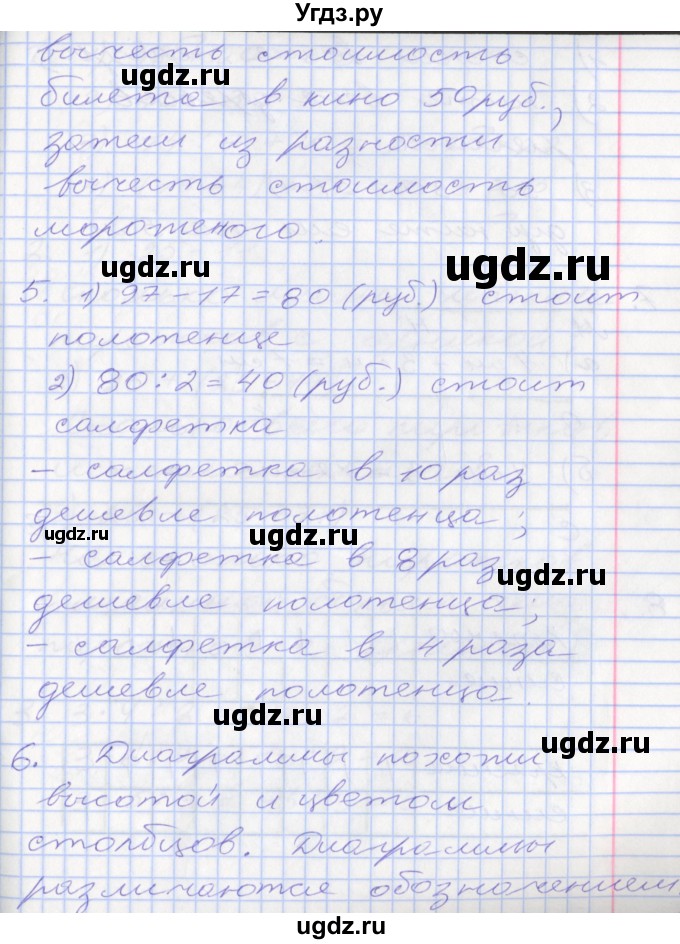 Угдз.ру
вычесть стоимость
ugdz.ru ugdz.ru
билета в кино 50 руб.,
затем из разности
вычесть стоимость
ugdz.ru
мороженого.
ugdz.ru ugdz.ru
5. 1) 97 - 17 = 80 (руб.) стоит
полотенце
2) 80 : 2 = 40 (руб.) стоит
ugdz.ru
салфетка
- салфетка в 10 раз
дешевле полотенца;
ugdz.ru ugdz.ru
- салфетка в 8 раз
ugdz.ru
дешевле полотенца;
- салфетка в 4 раза
дешевле полотенца.
ugdz.ru ugdz.ru
6. Диаграммы похожи
высотой и цветом
ugdz.ru
столбцов. Диаграммы
различаются обозначением
ugdz.ru